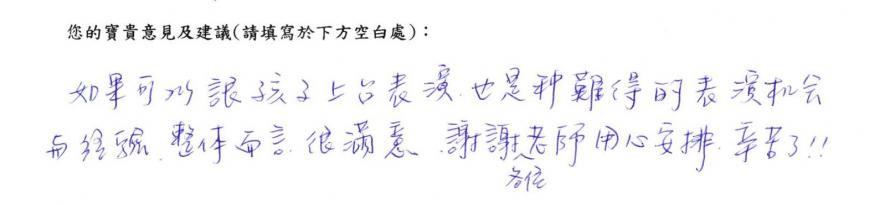 您的寶貴意見及建議(請填寫於下方空白處)：
如果可以讓孩子上台表演.也是种難得的表演机会
与经驗.整体而言.很滿意.謝謝各位老師用心安排.辛苦了!!